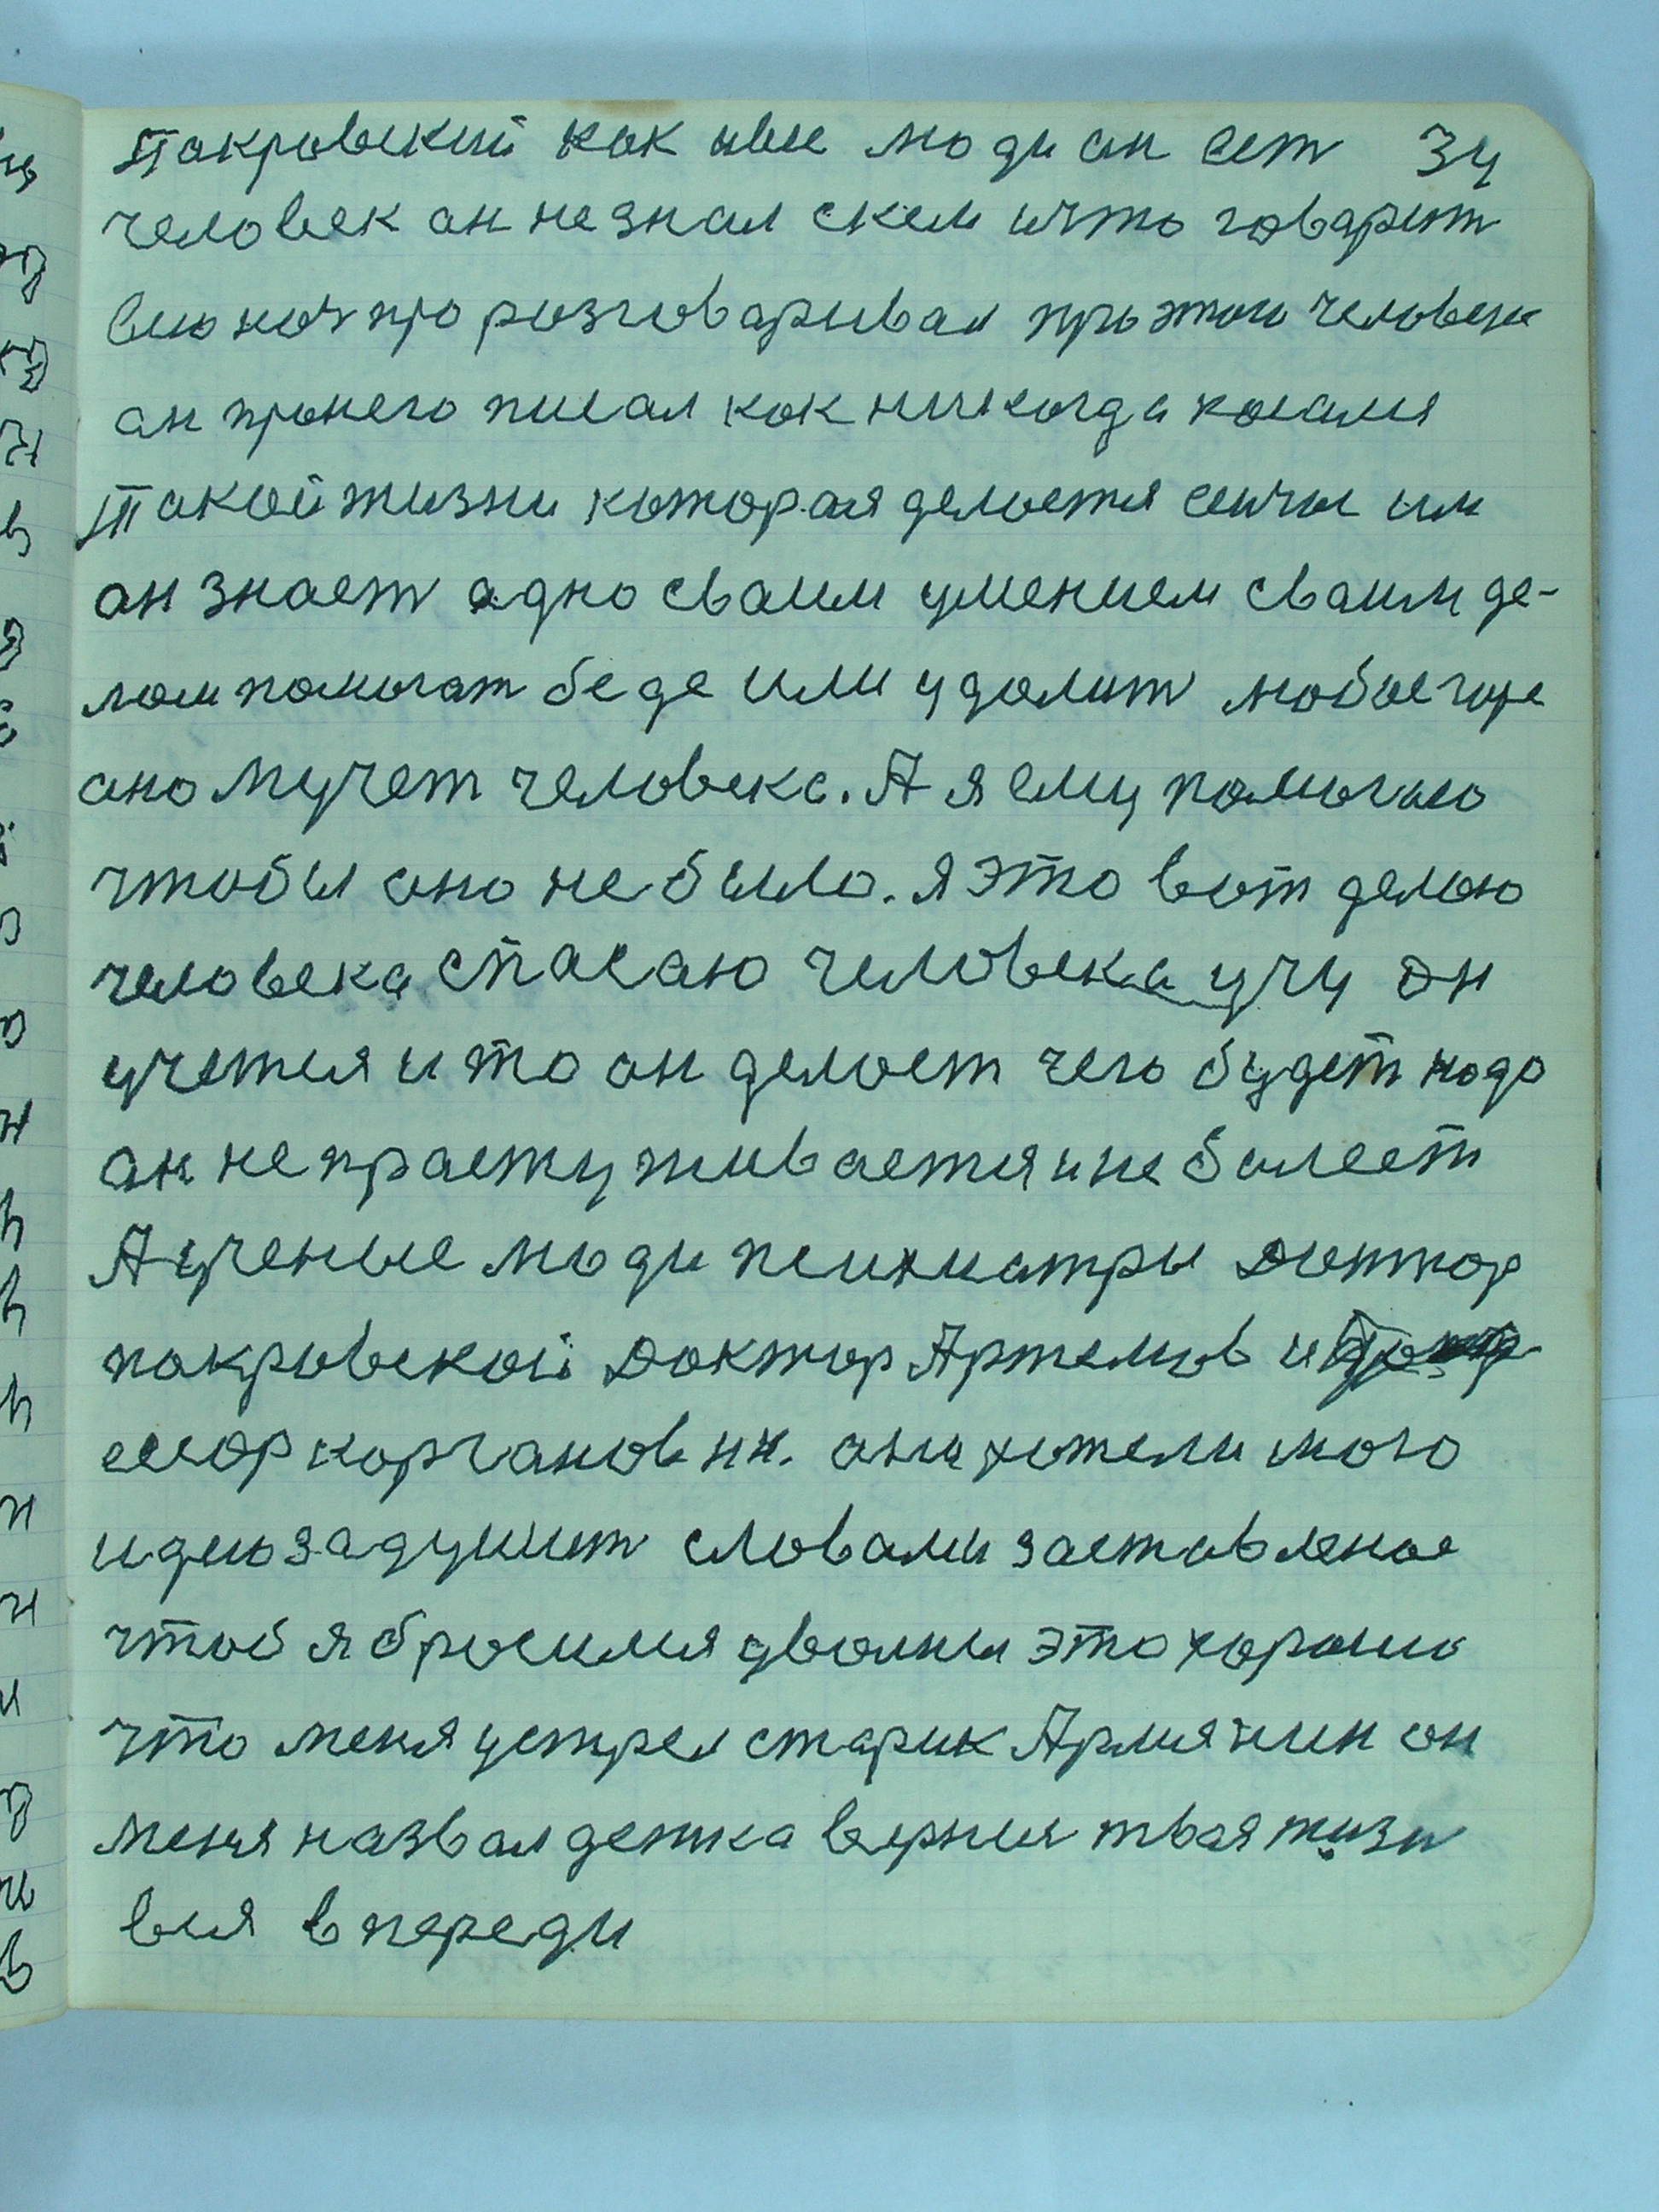 Пакровский как ивсе люди он ест 34
человек ан не знал скем ичто говарит
всю ноч про розговаривал про этои человека
ан пронего писал как никогда касался
Такой жизни которая делается сичас им
ан знает адно сваим умением сваим де-
лом помогат беде или удолит любое горе
оно мучет человека. А я ему помогаю
чтобы оно не было. я это вот делаю
человека спасаю человека учу он
учется и то он делоет чего будет надо
ан не прастуживается ине болеет
А ученые люди психиатры Доктор
пакровской Доктор Артемов и
ссор корганов нк. они хотели мою
идею задушит словами заставленое
чтоб я бросился дволны это хорошо
что меня устрел старик Армянин он
меня назвал детка вернися твая жизн
вся в переди